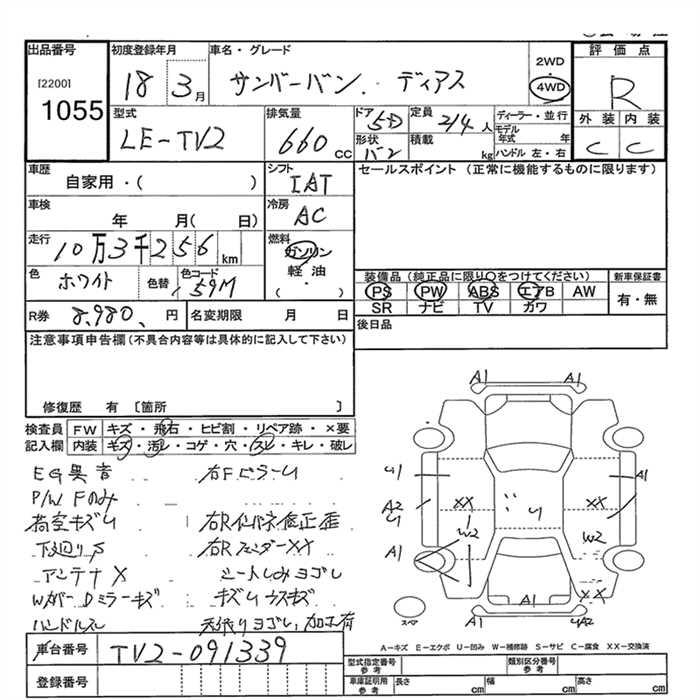 出品番号 初度登録年月 車名・グレード 評価点
[2200]
1055
18 3月 サンバーバン. ディアス
2WD
4WD
R
型式 排気量 ドア 定員 ディーラー・並行 外装 内装
LE-TV2 660cc 5D 2/4人 モデル年式 年
形状 積載 kg ハンドル 左・右
バン
C C
車歴 シフト セールスポイント (正常に機能するものに限ります)
自家用・( ) IAT
車検 冷房
年 月( 日) AC
走行 燃料
10万3千256km ガソリン
軽油
( )
色 色替 色コード
ホワイト 159M
装備品(純正品に限り○をつけてください) 新車保証書
PS PW ABS エアB AW 有・無
SR ナビ TV カワ
R券 8,980、円 名変期限 月 日
後日品
注意事項申告欄(不具合内容等は具体的に記入して下さい)
修復歴 有 〔箇所 〕
検査員 FW キズ・飛石・ヒビ割・リペア跡・×要
記入欄 内装 キズ・汚レ・コゲ・穴・スレ・キレ・破レ
EG異音 右Fピラーu
P/W Fのみ
荷室キズu 右Rインパネ修正歪
下廻りS 右RフェンダーXX
アンテナX シートしみヨゴレ
WカバーDミラーキズ キズu ウスキズ
ハンドルスレ 天張りヨゴレ,加工有
A1 A1
u1 A1
A2 XX XX
u1 u
W2 W2
A1
A1 XX
スペア A1 uA2
A-キズ E-エクボ U-凹み W-補修跡 S-サビ C-腐食 XX-交換済
車台番号 TV2-091339
登録番号
型式指定番号 参考 類別区分番号 参考
車庫証明用 参考 長さ cm 幅 cm 高さ cm